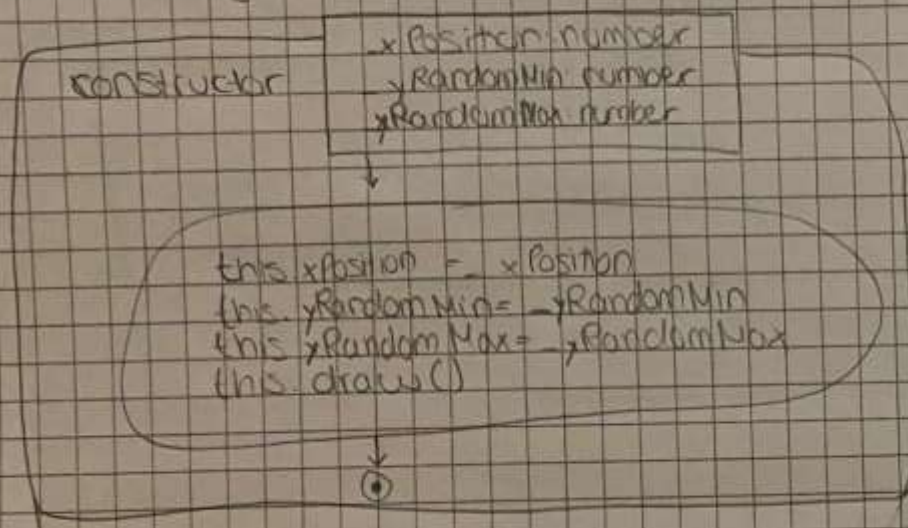 constructor
_xPosition: number
_yRandomMin: number
_yRandomMax: number
this.xPosition = _xPosition
this.yRandomMin = _yRandomMin
this.yRandomMax = _yRandomMax
this.draw()